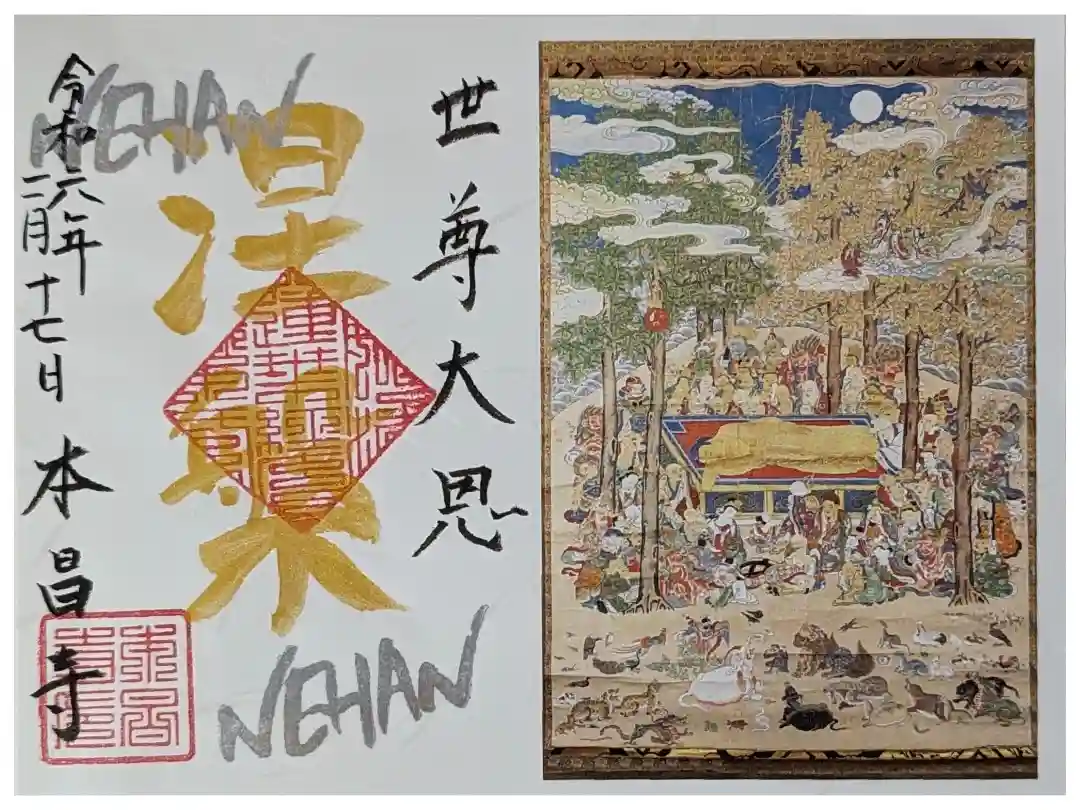 世尊大恩
涅槃
NEHAN
NEHAN
令和六年
二月十七日
本昌寺